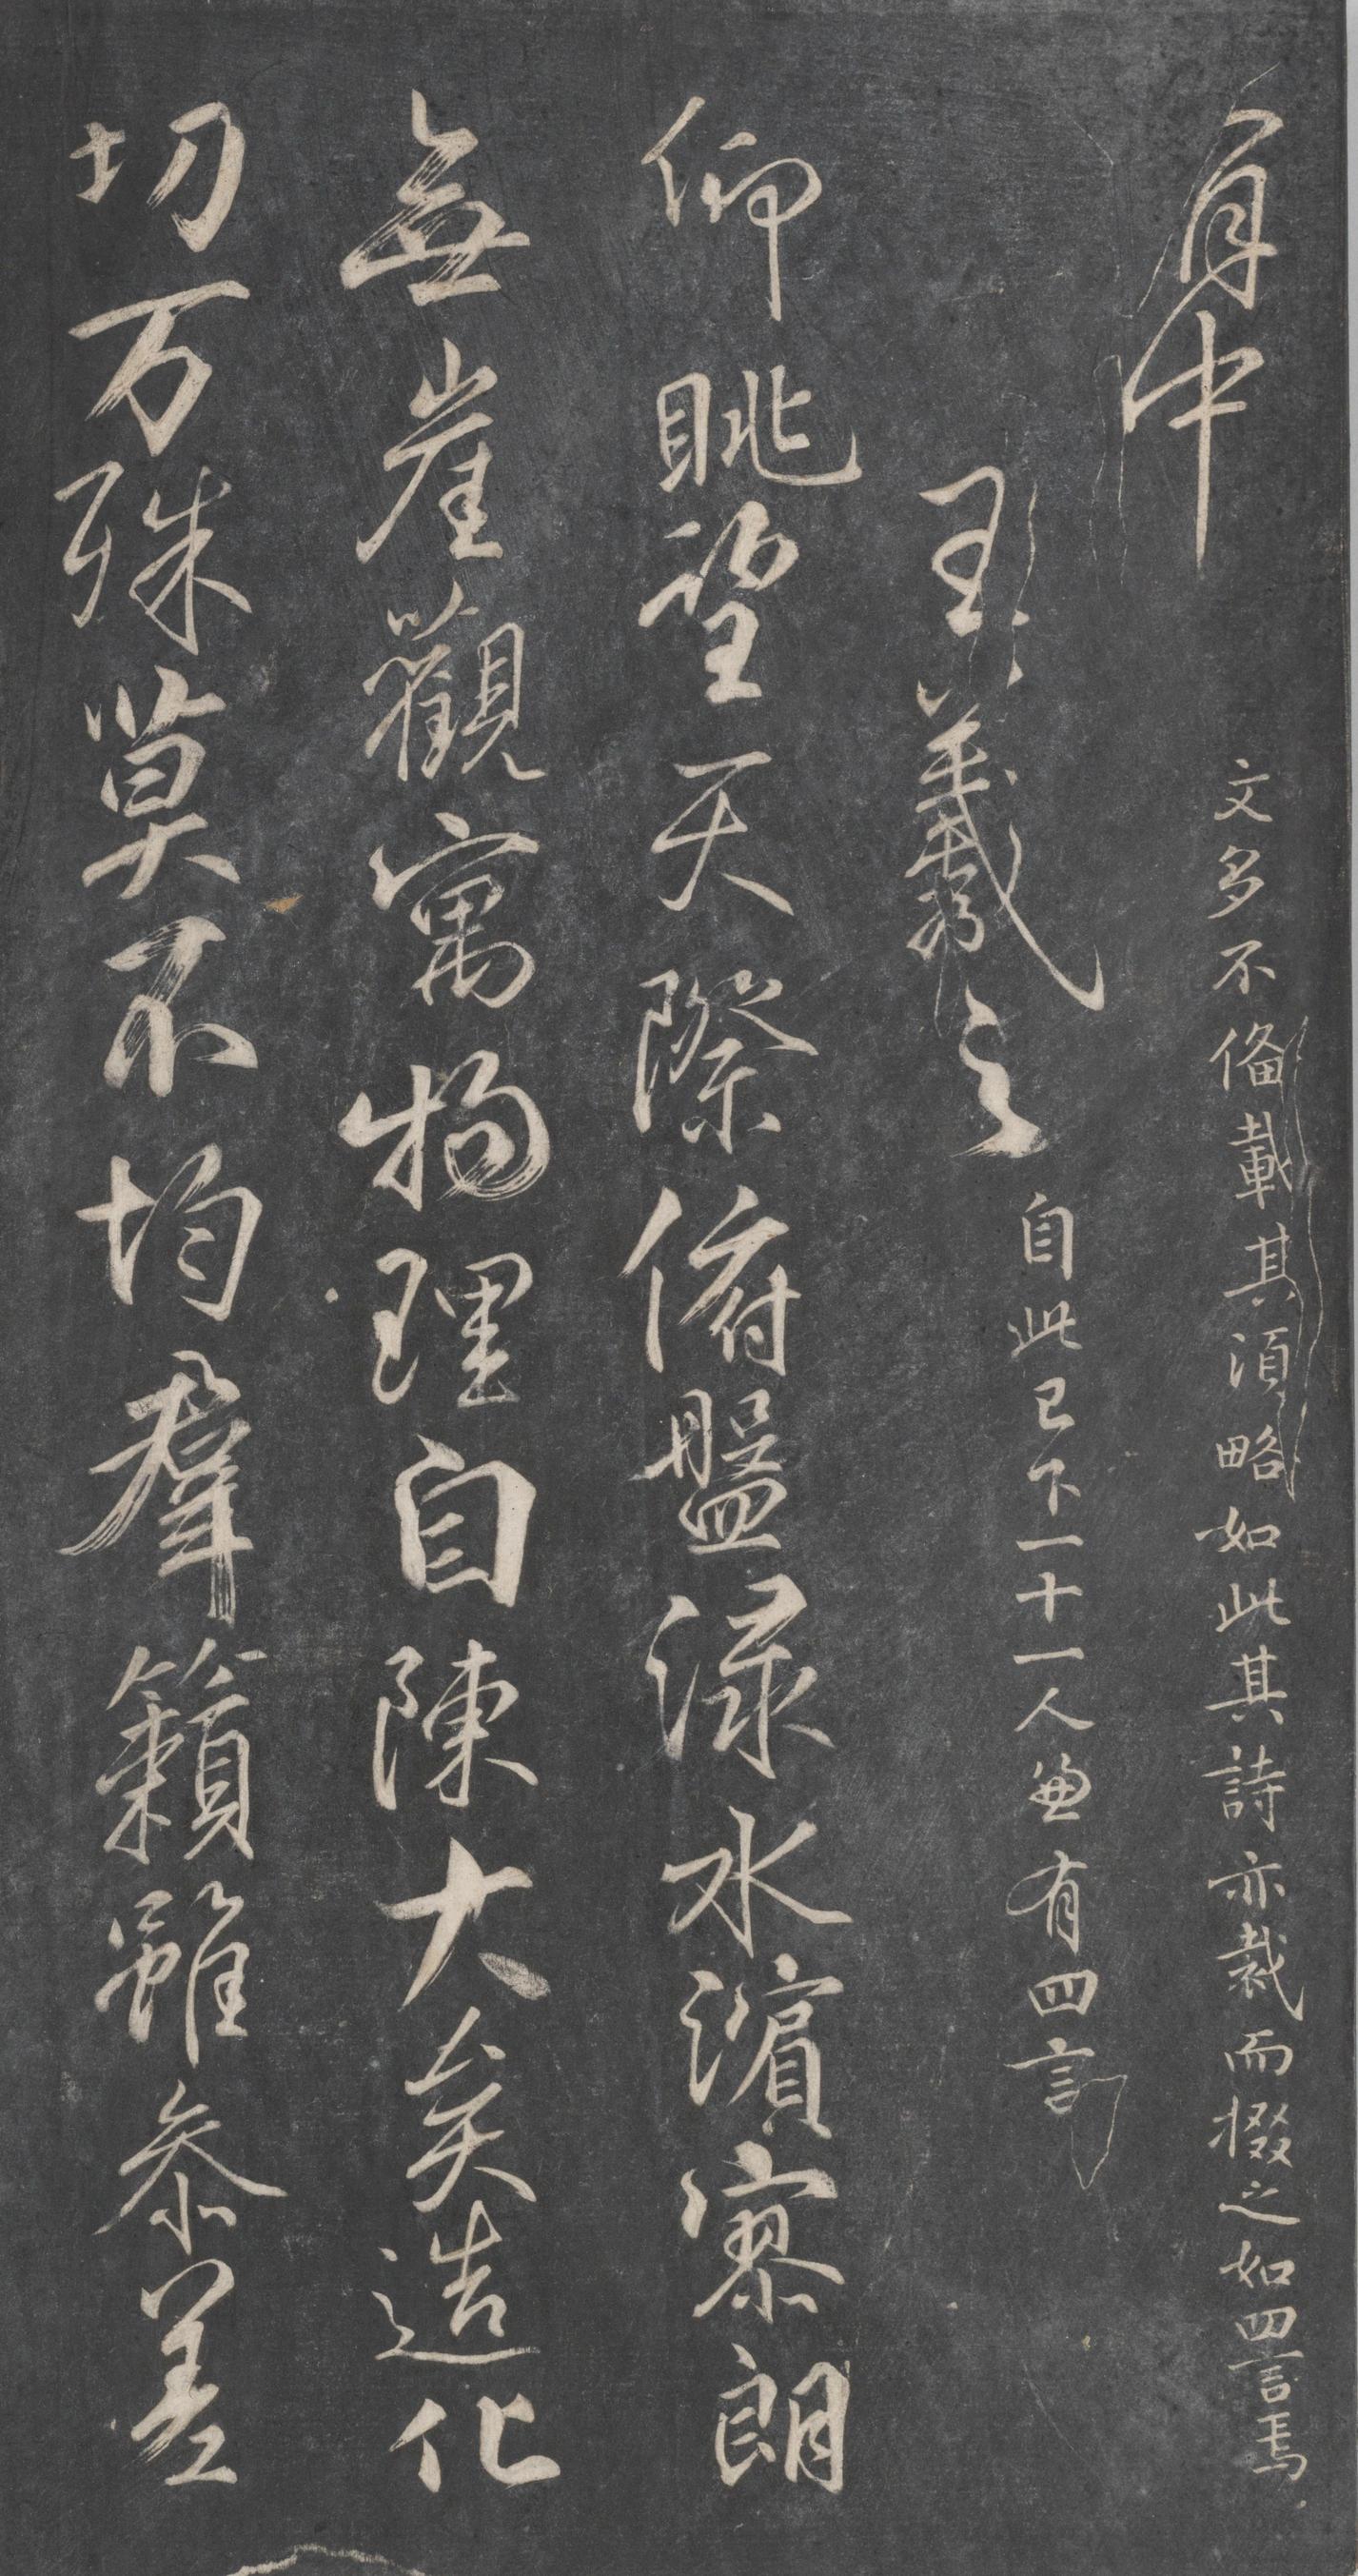 中 文多不俻載其湏略如此其詩亦裁而掇之如四言焉
王羲之 自此已下一十一人兼有四言
仰眺望天際俯盤淥水濱寥朗
無崖觀寓物理自陳大矣造化
切万殊莫不均羣籟雖叅差